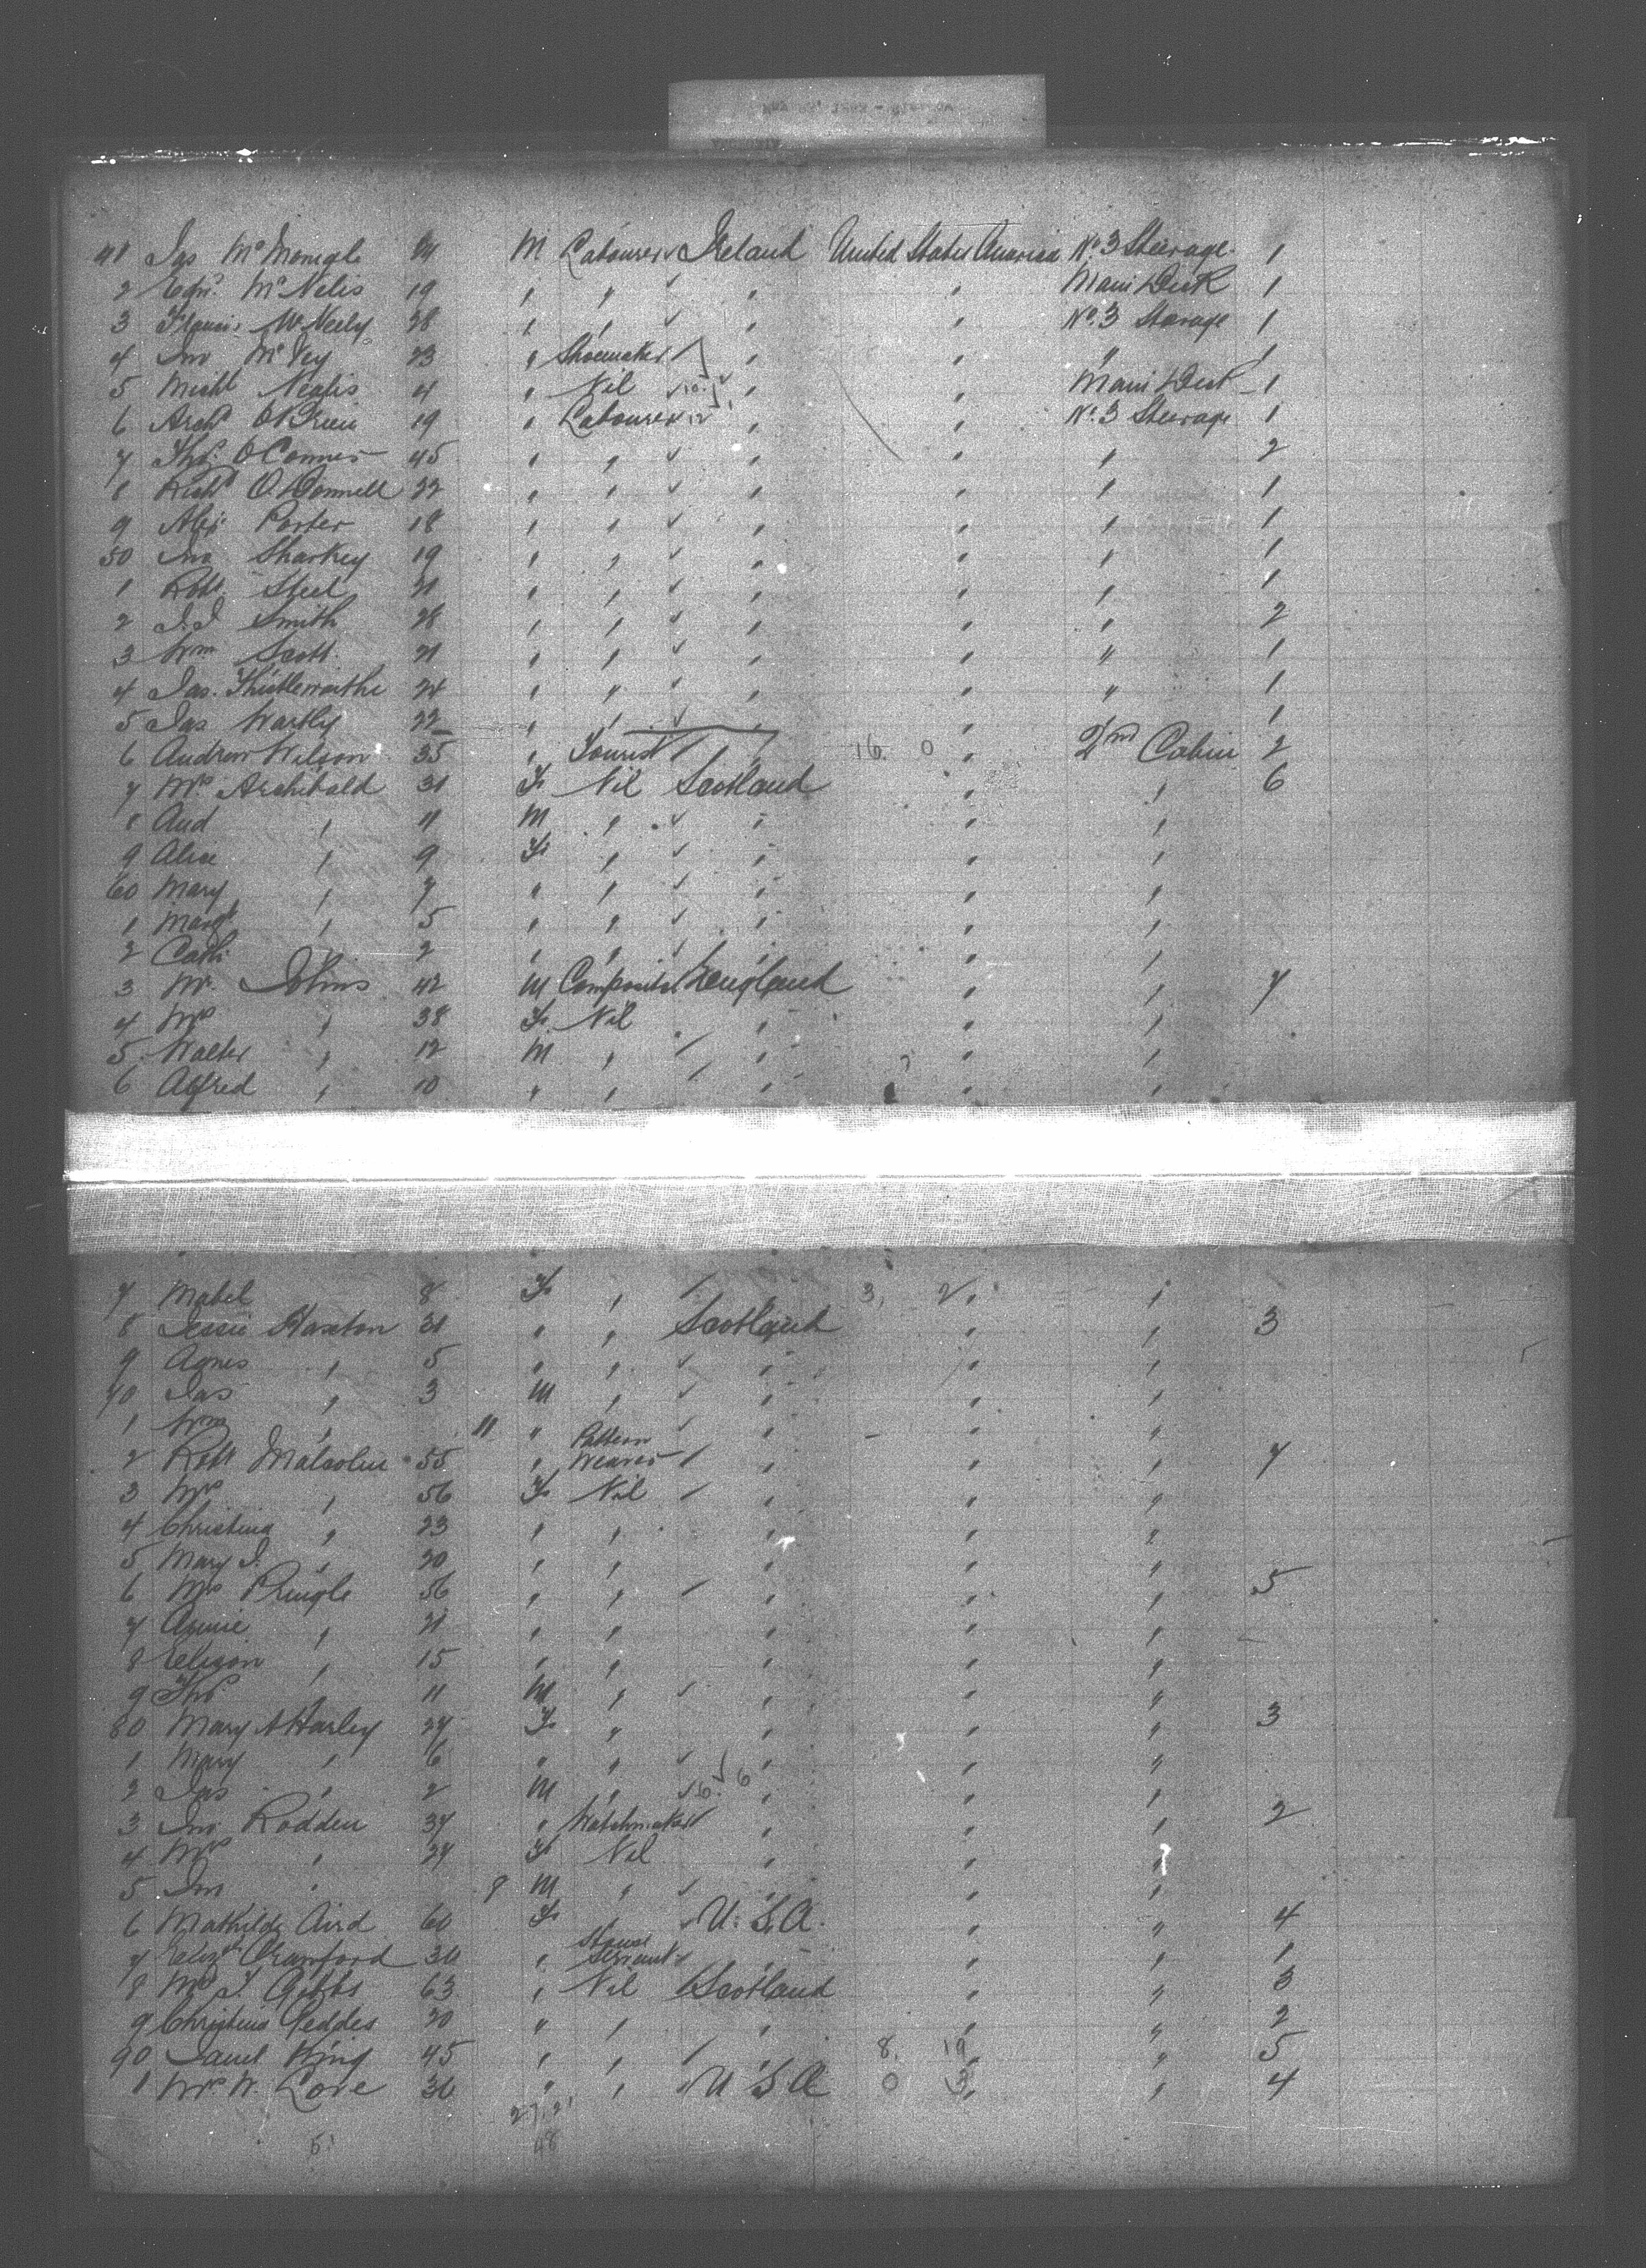 41 Jas McMonigle M Labourer Ireland United States America No. 3 Steerage 1
2 Edn. McNelis 19 " " " " Main Deck 1
3 Francis McNeely 28 " " " " No. 3 Steerage 1
4 Jno McVey 23 " Shoemaker " " " 1
5 Michl Nealis 4 " Nil " " Main Deck 1
6 Archd O'Brien 19 " Labourer " " No. 3 Steerage 1
7 Thos. O'Connor 45 " " " " " 2
8 Richd O'Donnell 22 " " " " " 1
9 Alex. Porter 18 " " " " " 1
50 Jno. Sharkey 19 " " " " " 1
1 Robt. Steel 21 " " " " " 1
2 J.J. Smith 28 " " " " " 2
3 Wm Scott 21 " " " " " 1
4 Jas. Thistlewaithe 24 " " " " " 1
5 Jas Wartly 22 " " " " 1
6 Andrew Wilson 35 " Tourist " 16. 0 " 2nd Cabin 2
7 Mrs Archibald 31 F Nil Scotland " " 6
8 And " 11 M " " " "
9 Alice " 9 F " " " "
60 Mary " 7 " " " " "
1 Margt " 5 " " " " "
2 Cath. " 2 " " " " "
3 Mr. Johns 42 M Compositor England " " 7
4 Mrs " 38 F Nil " " "
5 Walter " 12 M " " " "
6 Alfred " 10 " " " " "
7 Mabel 8 F " 3, 2 " "
8 Jessie Haxton 31 " " Scotland " " 3
9 Agnes " 5 " " " " "
70 Jas " 3 M " " " "
1 Wm " 11 " " " " "
2 Robt Malcolm 55 " Pattern Weaver " " " 7
3 Mrs " 56 F Nil " " "
4 Christina " 23 " " " " "
5 Mary J. " 20 " " " " "
6 Mrs Pringle 56 " " " " " 5
7 Annie " 21 " " " " "
8 Elison " 15 " " " " "
9 Thos " 11 M " " " "
80 Mary A Harley 27 F " " " " 3
1 Mary " 6 " " " " "
2 Jas " 2 M " 6 6 " " "
3 Jno. Rodden 37 " Watchmaker " " " 2
4 Mrs " 27 F Nil " " "
5 Jno " 9 M " " " "
6 Mathilda Aird 60 F " U.S.A. " " 4
7 Elizth Crawford 30 " House Servant " " " 1
8 Mrs J. Gibbs 63 " Nil Scotland " " 3
9 Christina Geddes 20 " " " " " 2
90 Janet King 45 " " " 8. 19 " " 5
1 Mrs W. Love 36 " " U S A 0 3 " " 4
27. 21
48